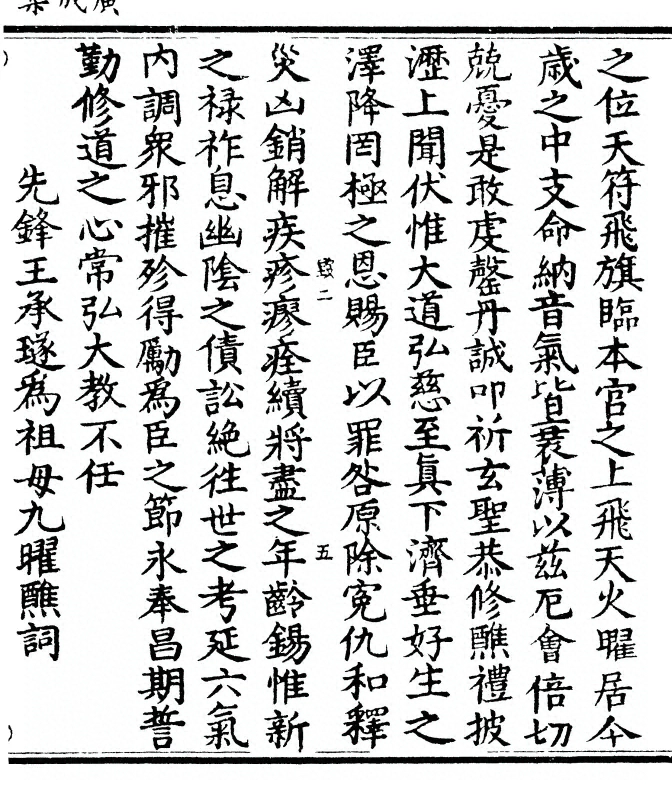 之位天符飛旗臨本宫之上飛天火曜居今
歳之中支命納音氣皆衰薄以兹厄會倍切
兢憂是敢虔罄丹誠叩祈玄聖恭修醮禮披
瀝上聞伏惟大道弘慈至眞下濟垂好生之
澤降罔極之恩賜臣以罪咎原除寃仇和釋
災凶銷解疾疹瘳痊續將盡之年齡錫惟新
之禄祚息幽陰之債訟絶徃世之考延六氣
内調衆邪摧殄得勵爲臣之節永奉昌期誓
勤修道之心常弘大教不任
先鋒王承璲爲祖母九曜醮詞
二
五